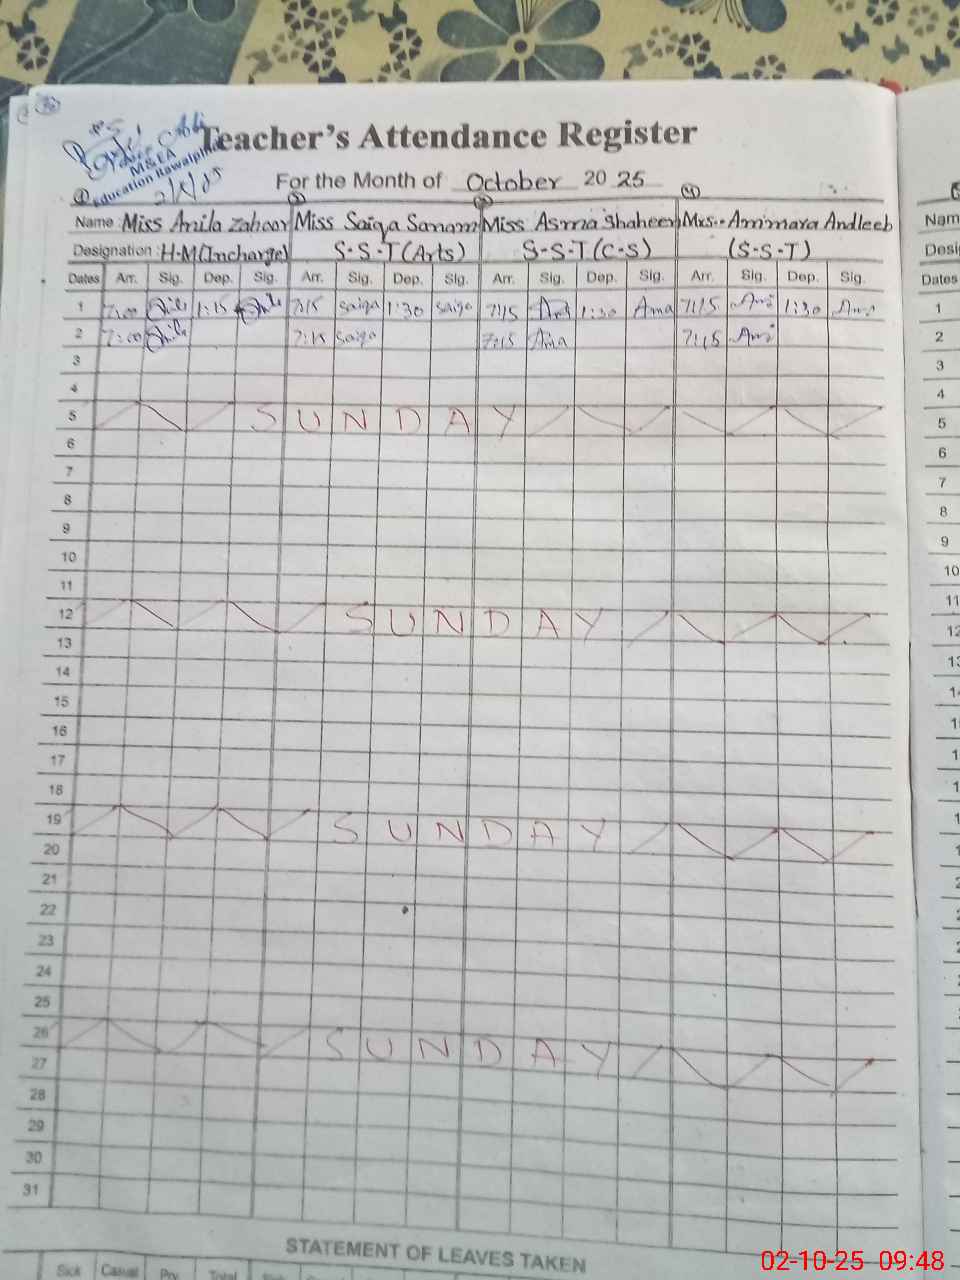 Teacher's Attendance Register
M&EA
Education Rawalpindi
For the Month of October 2025
Name: Miss Anila Zahoor Miss Saiqa Sanam Miss Asma Shaheen Mrs. Ammara Andleeb
Designation: H-M(Incharge) S-S-T(Arts) S-S-T(C-S) (S-S-T)
Dates Arr. Sig. Dep. Sig. Arr. Sig. Dep. Sig. Arr. Sig. Dep. Sig. Arr. Sig. Dep. Sig.
1 7:00 1:15 7:15 Saiqa 1:30 Saiqa 7:15 1:30 Ama 7:15 1:30
2 7:00 7:15 Saiqa 7:15 Ama 7:15
3
4
5 SUNDAY
6
7
8
9
10
11
12 SUNDAY
13
14
15
16
17
18
19 SUNDAY
20
21
22
23
24
25
26 SUNDAY
27
28
29
30
31
STATEMENT OF LEAVES TAKEN
Sick Casual Total
Dates
1
2
3
4
5
6
7
8
9
10
11
12
02-10-25 09:48